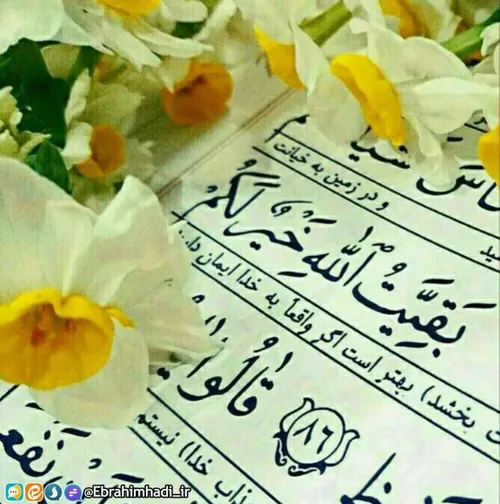 و در زمین به خیانت
بَقِیَّتُ اللَّهِ خَیْرٌ لَکُمْ
بخشد) بهتر است اگر واقعاً به خدا ایمان دا...
قَالُوا
۸۶
خدا) نیستم
@Ebrahimhadi_ir